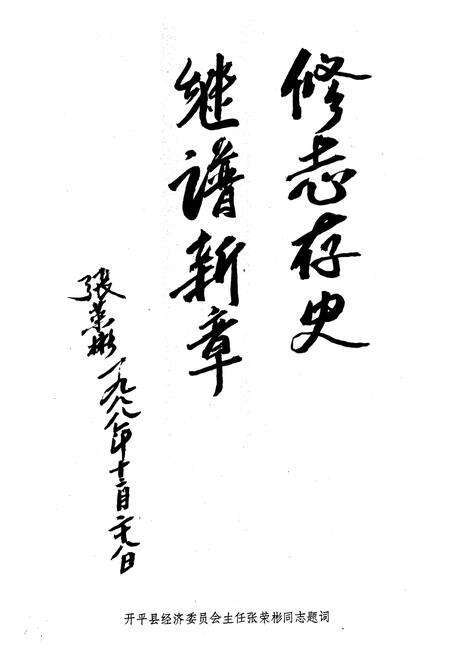 修志存史
继谱新章
張荣彬一九八八年十二月二十八日
开平县经济委员会主任张荣彬同志题词